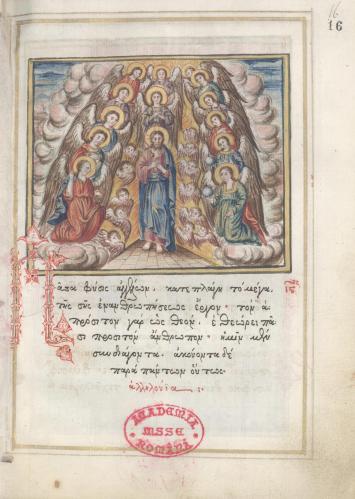 16
16
Πᾶσα φύσις ἀγγέλων, κατεπλάγη τὸ μέγα
τῆς σῆς ἐνανθρωπήσεως ἔργον· τὸν ἀ
πρόσιτον γὰρ ὡς Θεόν, ἐθεώρει πᾶ
σι προσιτὸν ἄνθρωπον· ἡμῖν μὲν
συνδιάγοντα, ἀκούοντα δὲ
παρὰ πάντων οὕτως·
ἀλληλούια
ACADEMIA
MSSE
ROMÂNĂ